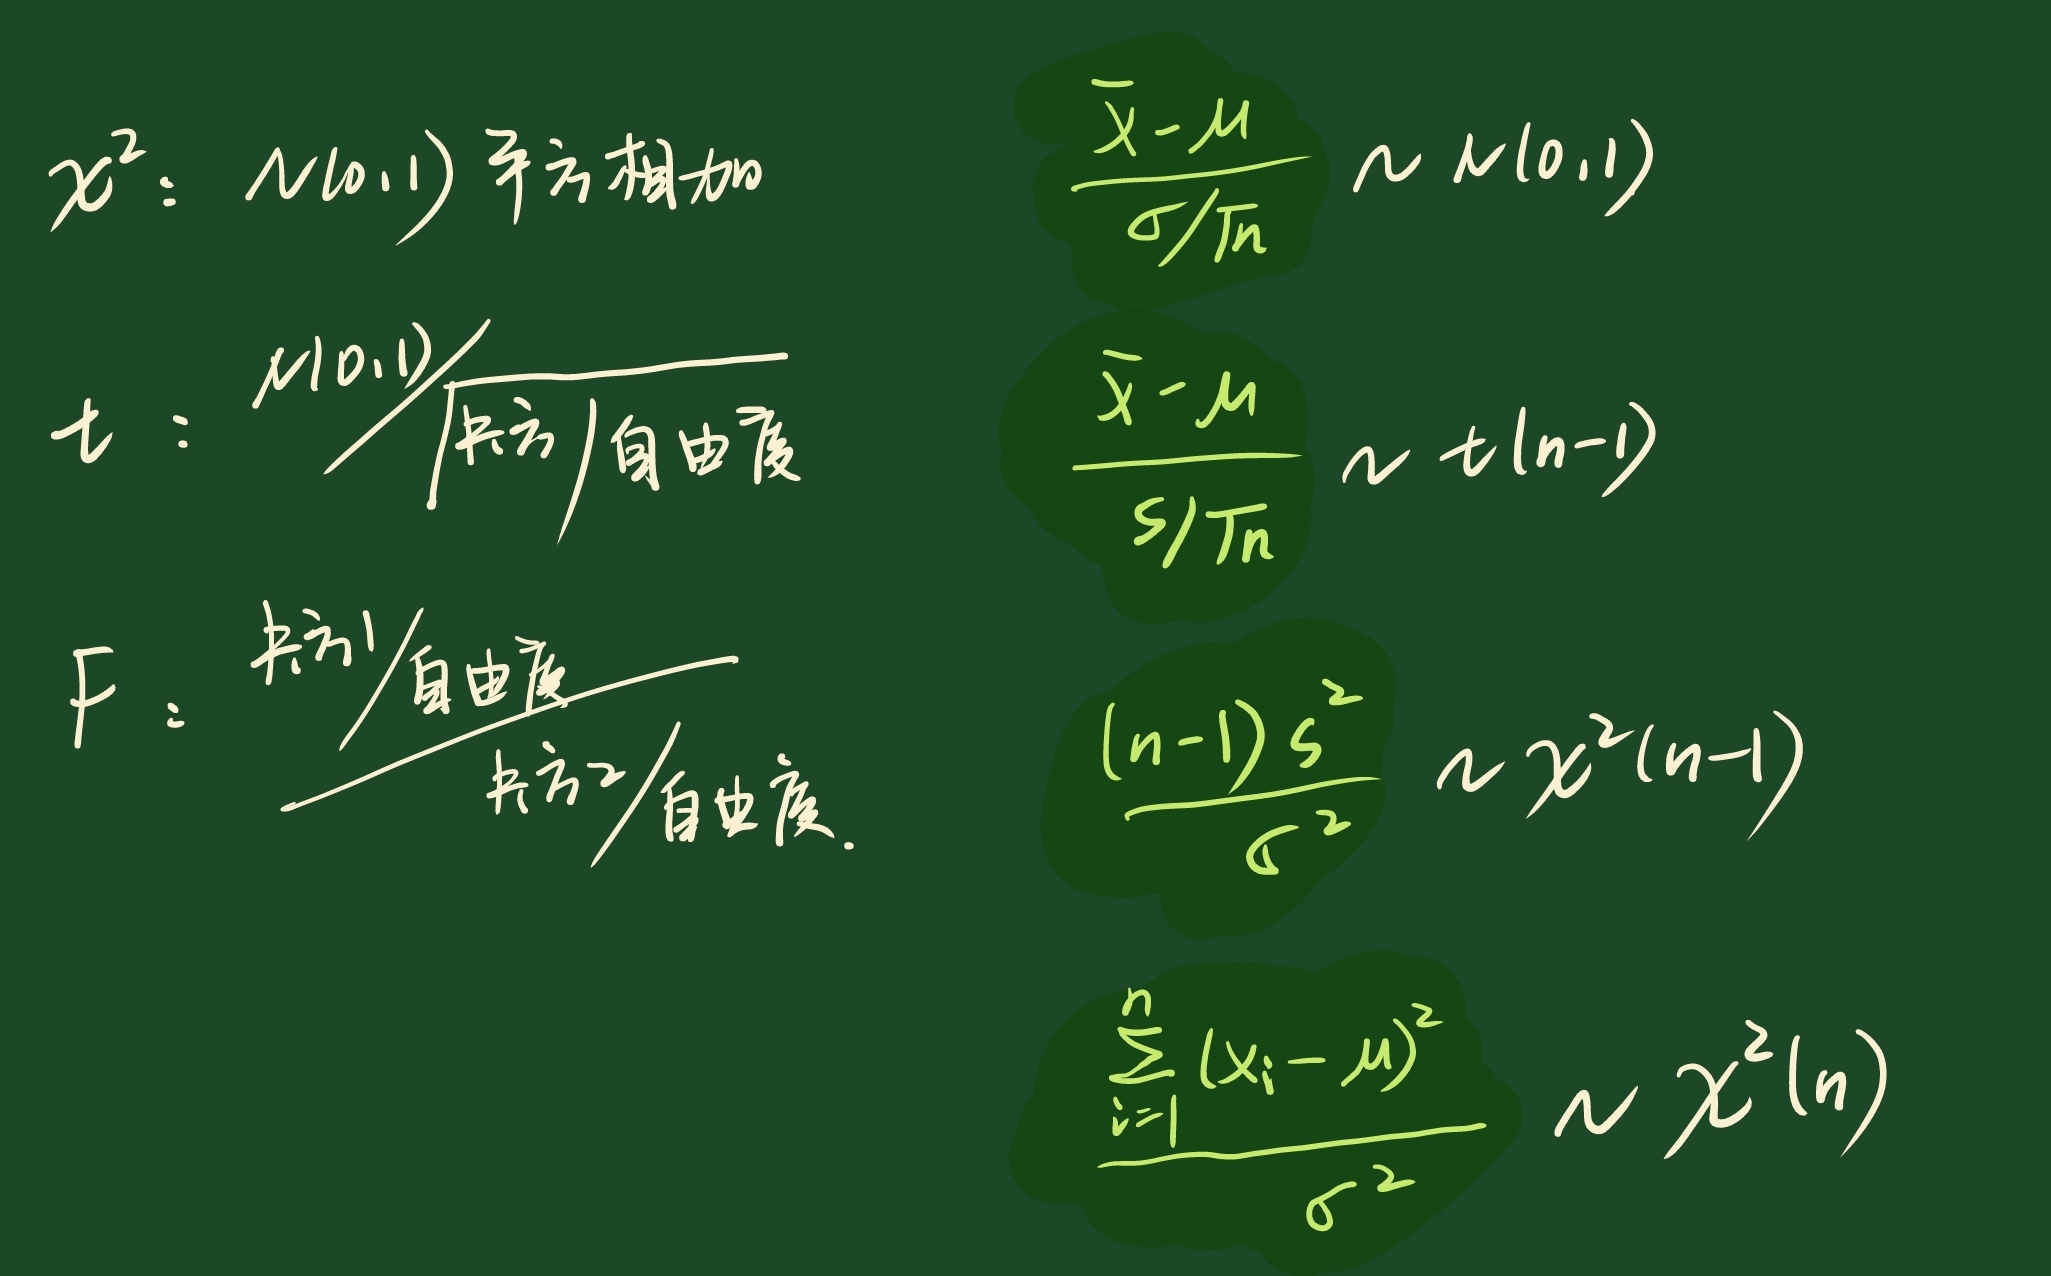 χ²: N(0,1) 平方相加
t: N(0,1)/√(卡方/自由度)
F: (卡方1/自由度)/(卡方2/自由度).
(x̄-μ)/(σ/√n) ~ N(0,1)
(x̄-μ)/(s/√n) ~ t(n-1)
(n-1)s²/σ² ~ χ²(n-1)
∑_{i=1}^{n}(xᵢ-μ)²/σ² ~ χ²(n)